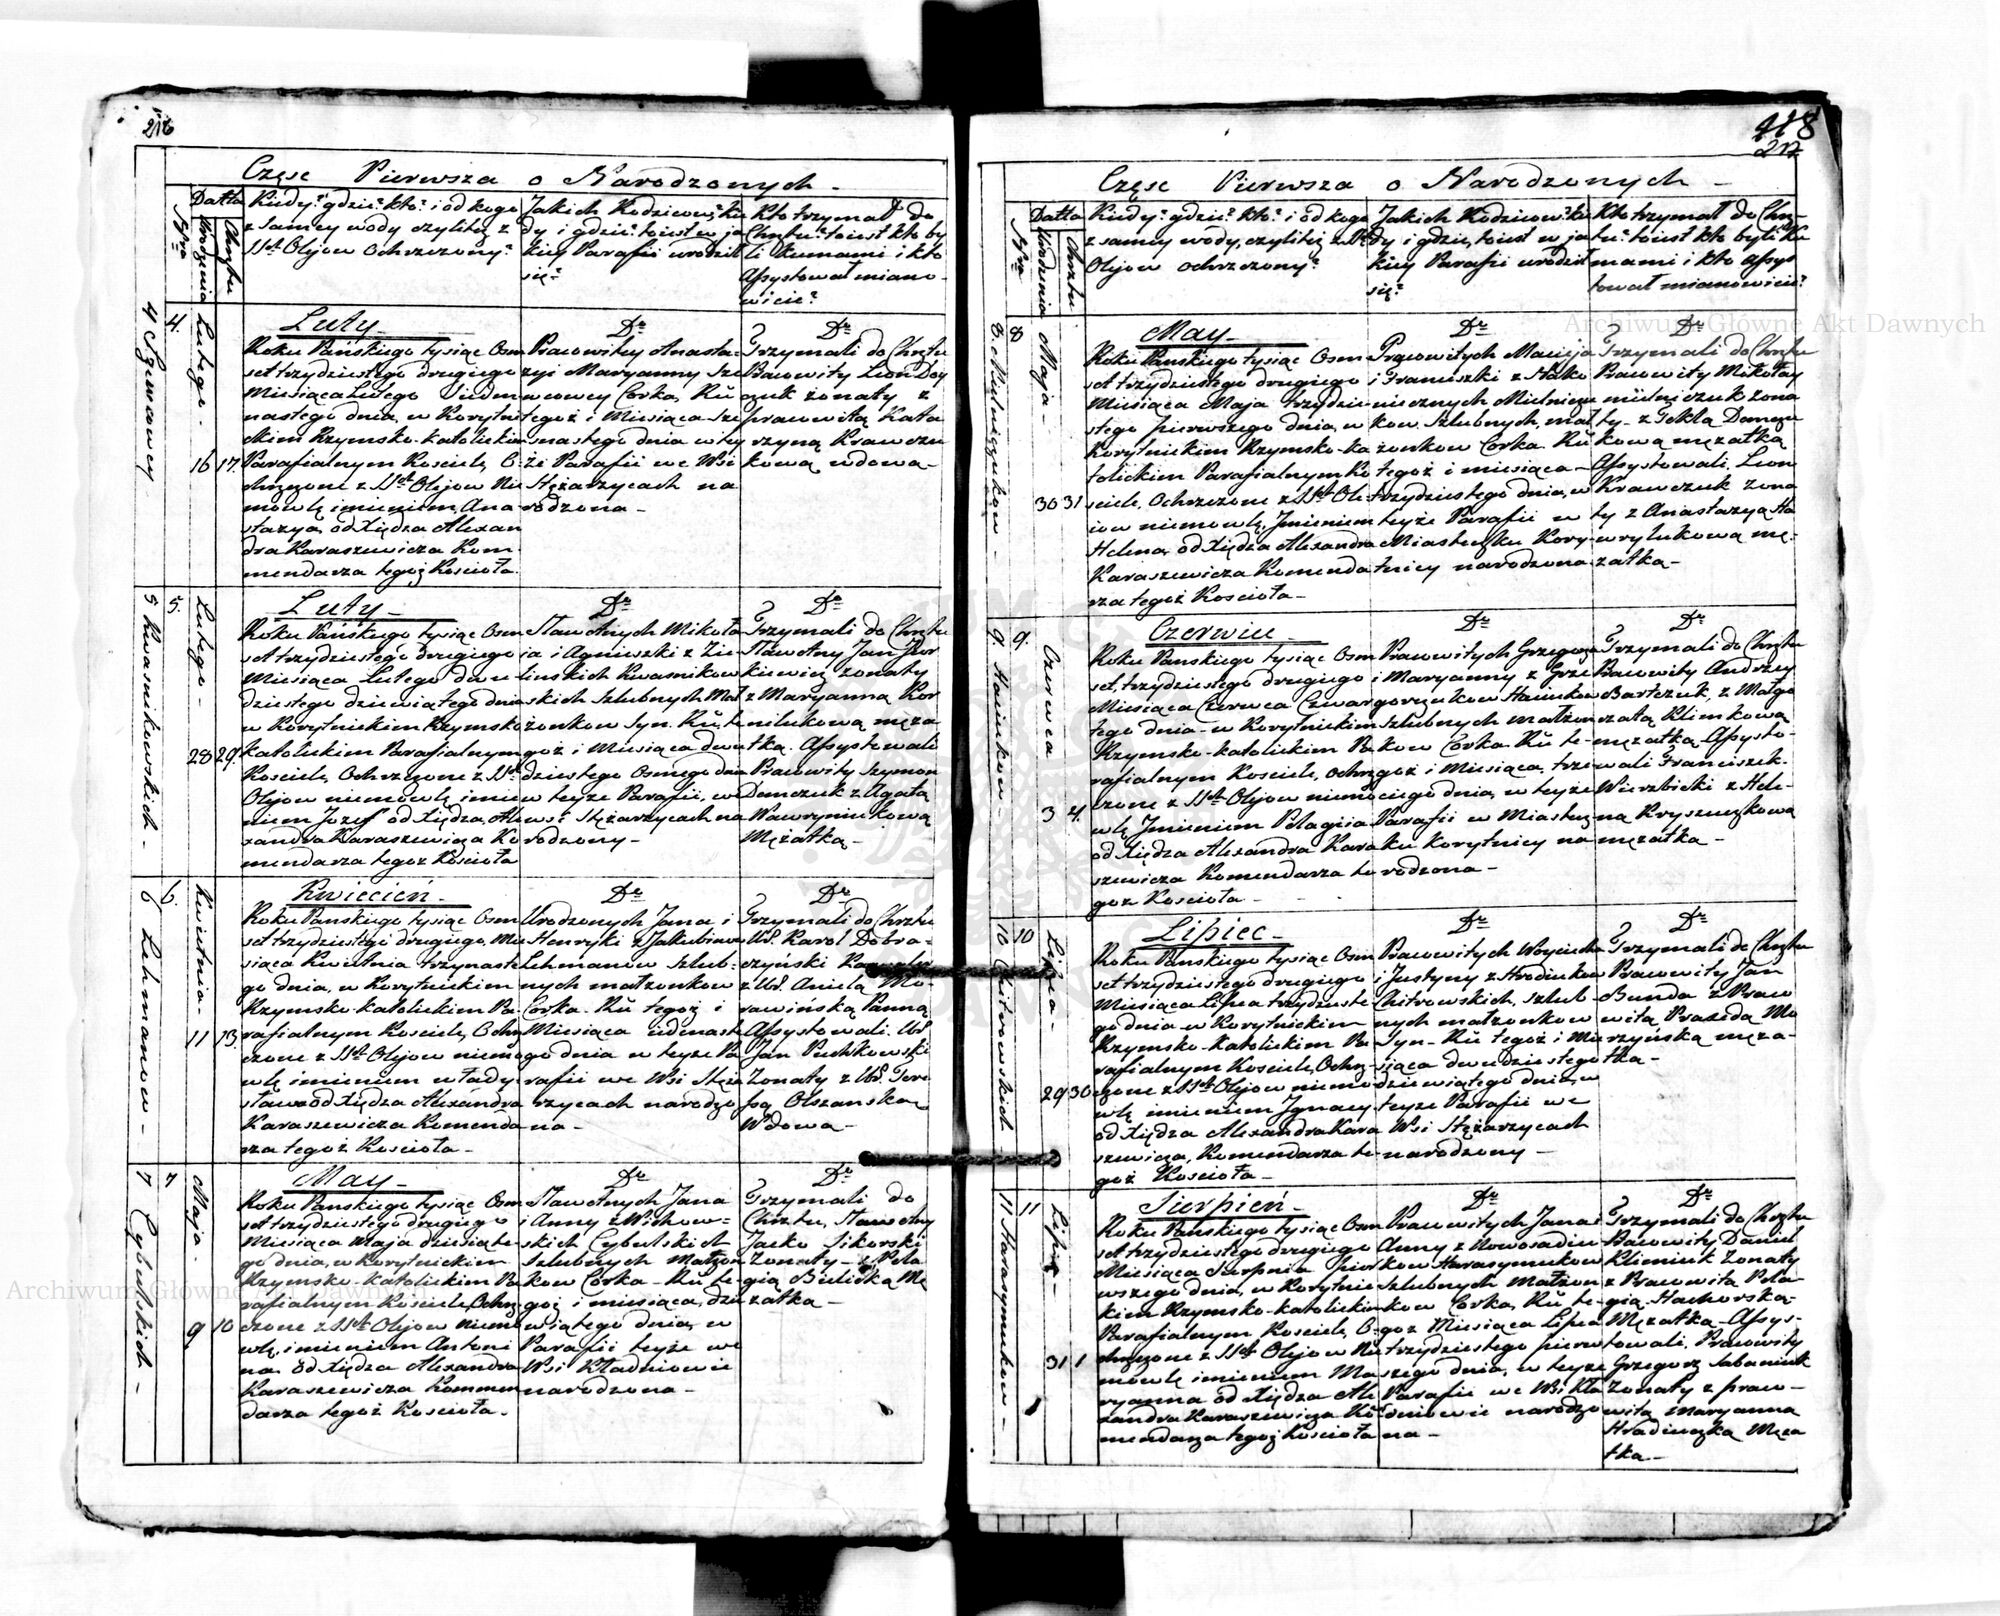 216
Częsc Pierwsza o Narodzonych
Datta
Nro
Urodzenia
Chrztu
Kiedy? gdzie? kto? i od kogo
z samey wody czyliteż z
SSt. Olejow ochrzczony?
Jakich Rodziców? kie
dy i gdzie? toiest w ja
kiey Parafii urodził
się?
Kto trzymał do
Chrztu? toiest kto by
li Kumami i kto
Assystował miano-
wicie?
4
4.
Lutego
16
17.
Luty
Roku Pańskiego tysiąc Osm
set trzydziestego drugiego
Miesiąca Lutego siedm
nastego dnia, w Korytni
ckim Rzymsko-katolickim
Parafialnym Kosciele O-
chrzczone z SSt. Olejow Nie
mowlę imieniem Ana
stazya, od Xiędza Alexan
dra Karaszewicza Kom
mendarza tegoż Koscioła
Dto
Pracowitey Anasta-
zyi Maryanny
Corka, Ru
tegoż i Miesiąca Sze
snastego dnia w tey
że Parafii we Wsi
Stężarzycach na
rodzona
Dto
Trzymali do Chrztu
Pracowity Leon
żonaty z
pracowitą Kata
rzyną Krawczu
kową wdowa
5 Kwasnikowskich
5.
Lutego
28
29.
Luty
Roku Pańskiego tysiąc Osm
set trzydziestego drugiego
Miesiąca Lutego dwu-
dziestego dziewiątego dnia
w Korytnickim Rzymsko
katolickim Parafialnym
Kosciele Ochrzczone z SSt.
Olejow niemowlę imie
niem Jozef od Xiędza Ale
xandra Karaszewicza Ko
mendarza tegoz Kosciola
Dto
Sławetnych Mikoła
ia i Agnieszki z Zie
linskich Kwasnikow
skich Szlubnych Mał
żonkow Syn. Ru te
goż i Miesiąca dwu
dziestego Osmego dnia
w teyze Parafii, we
wsi Stężarzycach na
rodzony
Dto
Trzymali do Chrztu
Sławetny Jan
żonaty
z Maryanną Kor
nilukową męża
tka. Assystowali
Pracowity Szymon
Demczuk z Agatą
Wawryniukową
Mężatką
6 Lehmanow
6.
Kwietnia
11
13.
Kwiecień
Roku Panskiego tysiąc Osm
set trzydziestego drugiego, Mie
siąca Kwietnia trzynaste
go dnia, w Korytnickim
Rzymsko-katolickim Pa-
rafialnym Kosciele, Ochrz
czone z SSt. Olejow niemo
wlę imieniem włady
sława od Xiędza Alexandra
Karaszewicza Komenda
rza tegoż Kosciola
Dto
Urodzonych Jana i
Henryki z Jakubiaw
Lehmanow Szlub-
nych małzonkow
Corka. Ru tegoż i
Miesiąca iedenaste
go dnia w teyze Pa
rafii we Wsi Stęża
rzycach narodzo
na
Dto
Trzymali do Chrztu
Ur. Karol Dobra-
czyński Kawaler
z Ur. Anielą Mo-
rawińską Panną
Assystowali. Ur.
Jan Puchkowski
Zonaty z Ur. Tere
są Olszanską
Wdowa
7 Cybulskich
7
Maja
9
10
May
Roku Panskiego tysiąc Osm
set trzydziestego drugiego
Miesiąca Maja dziesiąte
go dnia, w Korytnickim
Rzymsko-katolickim Pa
rafialnym Kosciele, Ochrz
czone z SSt. Olejow niemo
wlę, imieniem Antoni
na od Xiędza Alexandra
Karaszewicza Kommen
darza tegoż Kosciola
Dto
Sławetnych Jana
i Anny z Wichow-
skich Cybulskich
Szlubnych Małzon
kow Corka Ru te-
goż i miesiąca, dzie
wiątego dnia, w
Parafii teyże we
Wsi Kładniowie
narodzona
Dto
Trzymali do
Chrztu, Sławetny
Jacko Sikorski
Zonaty z Pela
gią Bielicką Mę
zatka
418
217
Częsc Pierwsza o Narodzonych
Datta
Nro
Urodzenia
Chrztu
Kiedy? gdzie? kto? i od kogo
z samey wody, czyliteż z SSt.
Olejow ochrzczony?
Jakich Rodzicow? kie
dy i gdzie, toiest w ja
kiey Parafii urodził
się?
Kto trzymał do Chrz-
tu? toiest kto byli Ku
mami i kto Assys
tował mianowicie?
8. Mielniczukow
8
Maja
30
31
May
Roku Panskiego tysiąc Osm
set trzydziestego drugiego
Miesiąca Maja trzydzie
stego pierwszego dnia, w
Korytnickim Rzymsko-ka
tolickim Parafialnym Ko
sciele, Ochrzczone z SSt. Ole
iow niemowlę, Imieniem
Helena, od Xiędza Alexandra
Karaszewicza Komenda
rza tegoż Kosciola
Dto
Pracowitych Macieja
i Franciszki z
Mielniczu
kow, Szlubnych, mał
żonkow Corka. Ru
tegoż i miesiąca
trzydziestego dnia, w
teyże Parafii w
Miasteczku Kory-
tnicy narodzona
Dto
Trzymali do Chrztu
Pracowity Mikołay
mielniczuk żona
ty z Teklą
kową mężatką
Assystowali. Leon
Krawczuk zona
ty z Anastazyą Ha
wrylukową mę-
zatka
9. Haciukow
9.
Czerwca
3
4.
Czerwiec
Roku Panskiego tysiąc Osm
set, trzydziestego drugiego
Miesiąca Czerwca Czwar
tego dnia w Korytnickim
Rzymsko-katolickim Pa
rafialnym Kosciele, ochrz
czone z SSt. Olejow niemo
wlę Imieniem Pelagiia
od Xiędza Alexandra Kara
szewicza Komendarza te
goż Kosciola
Dto
Pracowitych Grzegorza
i Maryanny z Grze
gorczukow Haciukow
Szlubnych małzon
kow Corka Ru te-
goż i Miesiąca, trze
ciego dnia, w teyże
Parafii w Miastecz
ku Korytnicy na
rodzona
Dto
Trzymali do Chrztu
Pracowity Andrzey
Bartczuk, z Małgo
rzatą Klimkową
mężatką Assysto-
wali Franciszek
Wierzbicki z Hele-
na Kryszczukową
mężatka
10 Chitrowskich
10
Lipca
29
30
Lipiec
Roku Panskiego tysiąc Osm
set trzydziestego drugiego
Miesiąca Lipca trzydzieste
go dnia w Korytnickim
Rzymsko-katolickim Pa
rafialnym Kosciele, Ochrz-
czone z SSt. Olejow niemo
wlę imieniem Jgnacy
od Xiędza Alexandra Kara
szewicza, Komendarza te-
goż Kosciola
Dto
Pracowitych Woyciecha
i Justyny z Hrodiukow
Chitrowskich, szlub-
nych matzonkow
Syn Ru tegoż i Mie
siąca dwudziestego
dziewiątego dnia, w
teyze Parafii we
Wsi Stężarzycach
narodzony
Dto
Trzymali do Chrztu
Pracowity Jan
Bunda z Praco
witą Praxedą Mo
rzyńską męża-
tka
11 Harasymukow
11
Lipca
31
1
Sierpień
Roku Panskiego tysiąc Osm
set trzydziestego drugiego
Miesiąca Sierpnia pier
wszego dnia, w Korytnic
kim Rzymsko-katolickim
Parafialnym Kosciele, O-
chrzczone z SSt. Olejow Nie
mowlę imieniem Ma
ryanna od Xiędza Ale
xandra Karaszewicza Ko
mendarza tegoż Kosciola
Dto
Pracowitych Jana i
Anny z Nowosadiu
kow Harasymukow
Szlubnych Małzon
kow Corka, Ru te-
goz Miesiąca Lipca
trzydziestego pierw
szego dnia, w teyze
Parafii we Wsi Kła
dniowie narodzo
na
Dto
Trzymali do Chrztu
Pracowity Daniel
Klimiuk Zonaty
z Pracowitą Pela-
gią Stachorską
Mężatką Assys-
towali, Pracowity
Grzegorz Sabaniuk
Zonaty z praco-
witą Maryanna
Hradiuczką Męza
tka
Archiwum Główne Akt Dawnych
Archiwum Główne Akt Dawnych